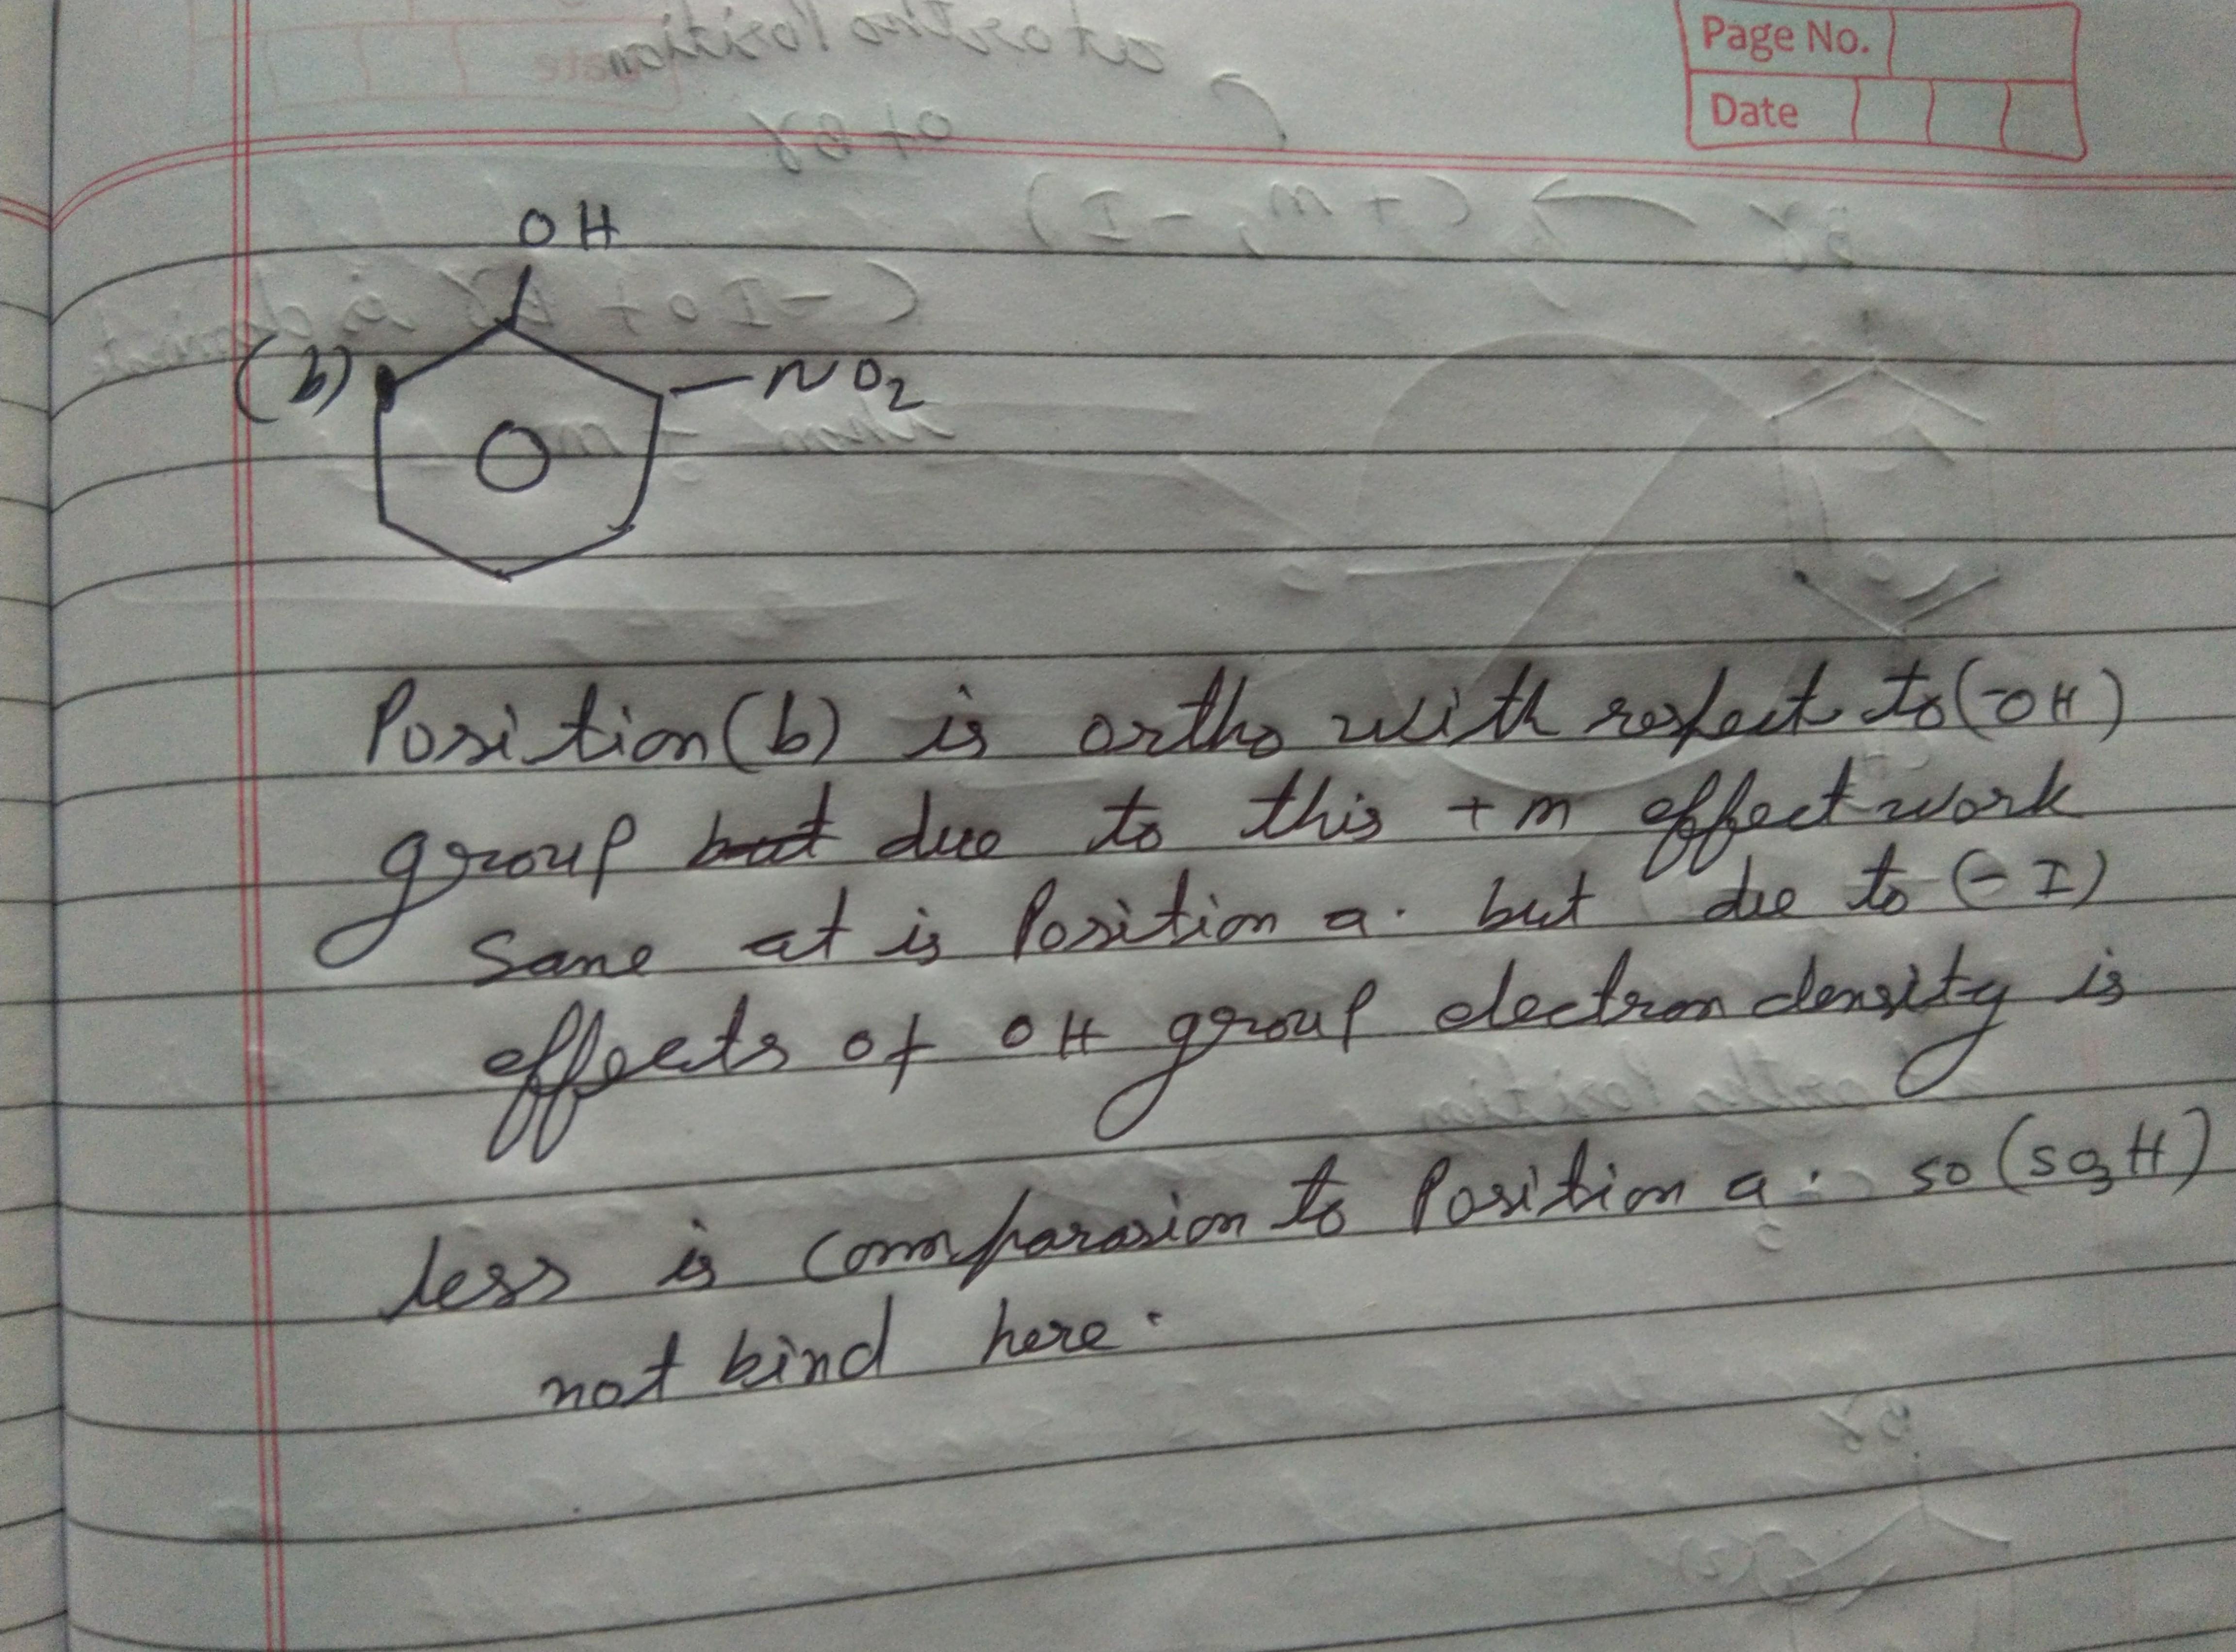 Page No.
Date
OH
(b)
NO2
Position (b) is ortho with respect to (-OH)
group but due to this +m effect work
Sane at is Position a. but due to (-I)
effects of OH group electron density is
less is comparasion to Position a. so (SO3H)
not bind here.